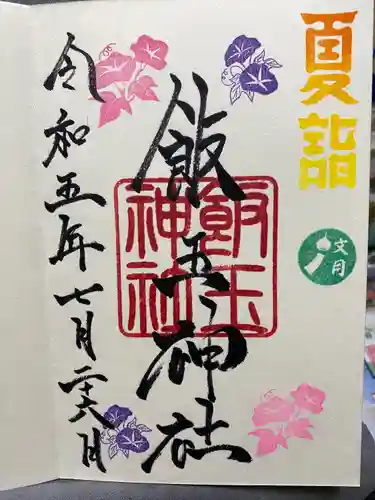 夏詣
文月
飯玉神社
飯玉神社
令和五年七月二十八日